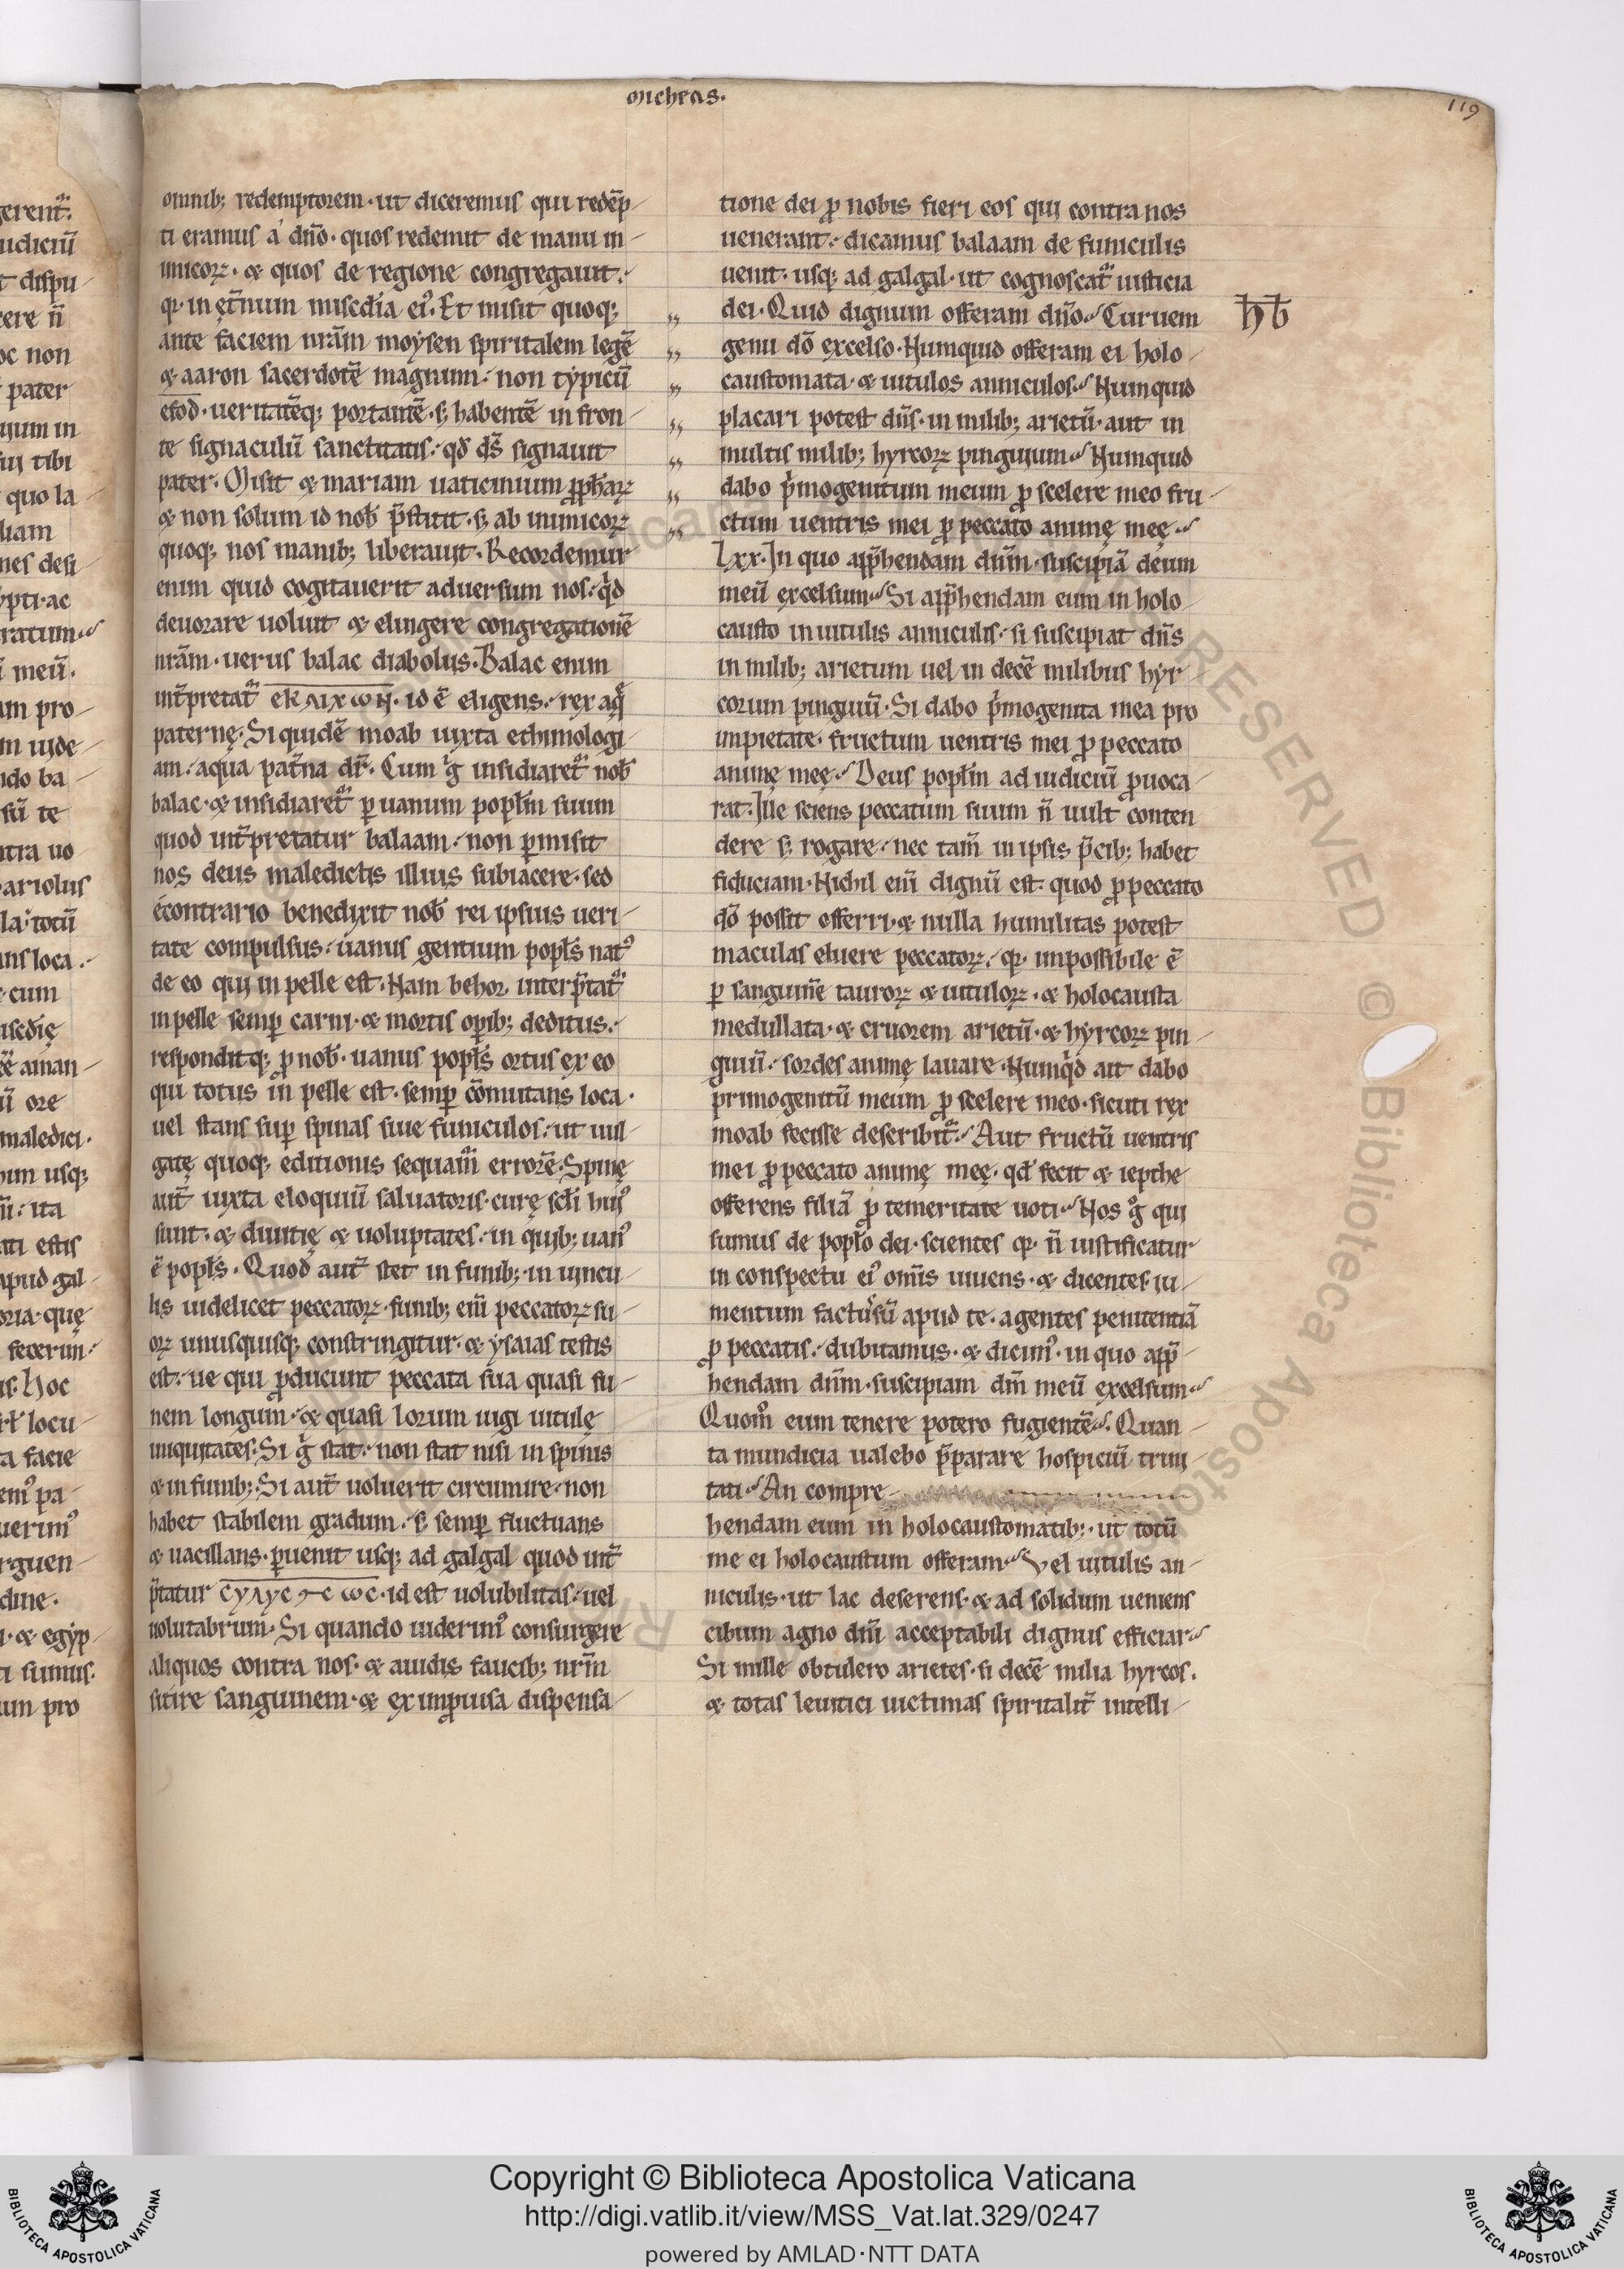 micheas.
119
omnib; redemptorem· ut diceremus qui redēp-
ti eramus a dn̄o· quos redemit de manu in-
imicoꝝ· & quos de regione congregauit·
qꝛ in ęt̄num misc̄dia ei᾿. Et misit quoq;
ante faciem nr̄am moysen spiritalem legē
& aaron sacerdotē magnum· non typicū
efod· ueritatēq; portantē· s; habentē in fron-
te signaculū sanctitatis· qd̄ d̄s signauit
pater· Misit & mariam uaticinium ꝓph̄aꝝ
& non solum id nob̄ p̄stitit· s; ab inimicoꝝ
quoq; nos manib; liberauit· Recordemur
enim quid cogitauerit aduersum nos· qⁱd
deuorare uoluit & elingere congregationē
nr̄am· uerus balac diabolus· Balac enim
int̄pretat᷑ εκλιχων· id ē eligens· rex aq̄
paternę· Si quidē moab iuxta ethimologi-
am· aqua pat̄na dr̄. Cum g̊ insidiaret᷑ nob̄
balac· & insidiaret᷑ ꝑ uanum popl̄m suum
quod int̄pretatur balaam· non ꝑmisit
nos deus maledictis illius subiacere· sed
econtrario benedixit nob̄ rei ipsius ueri-
tate compulsus· uanus gentium popl̄s nat᾿
de eo qui in pelle est· Nam behor interp̄tat᷑
in pelle semꝑ carni· & mortis oꝑib; deditus·
responditq; ꝓ nob̄· uanus popl̄s ortus ex eo
qui totus in pelle est· semꝑ cōmutans loca·
uel stans suꝑ spinas siue funiculos· ut uul-
gatę quoq; editionis sequam᷑ errorē· Spinę
aut̄ iuxta eloquiū saluatoris· curę scl̄i hui᾿
sunt· & diuitię & uoluptates· in quib; uan᾿
ē popl̄s· Quod aut̄ stet in funib;· in uincu-
lis uidelicet peccatoꝝ· funib; eni̅ peccatoꝝ su-
oꝝ unusquisq; constringitur· & ysaias testis
est· ue qui ꝓducunt peccata sua quasi fu-
nem longum· & quasi lorum iugi uitulę
iniquitates· Si g̊ stat· non stat nisi in spinis
& in funib;· Si aut̄ uoluerit circumire· non
habet stabilem gradum· s; semꝑ fluctuans
& uacillans· ꝑuenit usq; ad galgal quod int̄
p̄tatur · id est uolubilitas· uel
uolutabrum· Si quando uiderim᾿ consurgere
aliquos contra nos· & auidis faucib; nr̄m
sitire sanguinem· & ex improuisa dispensa-
tione dei ꝓ nobis fieri eos qui contra nos
uenerant· dicamus balaam de funiculis
uenit· usq; ad galgal· ut cognoscat᷑ iusticia
dei· Quid dignum offeram dn̄o· Curuem
genu dō excelso· Numquid offeram ei holo-
caustomata· & uitulos anniculos· Numquid
placari potest dn̄s· in milib; arietū· aut in
multis milib; hyrcoꝝ pinguium· Numquid
dabo p̄mogenitum meum ꝓ scelere meo fru-
ctum uentris mei ꝓ peccato animę meę·
Lxx· In quo app̄hendam dn̄m· suscipiā deum
meū excelsum· Si app̄hendam eum in holo-
causto in uitulis anniculis· si suscipiat dn̄s
in milib; arietum uel in decē milibus hyr
corum pinguiū· Si dabo p̄mogenita mea pro
impietate· fructum uentris mei ꝓ peccato
animę meę· Deus popl̄m ad iudiciū ꝓuoca-
rat· Ille sciens peccatum suum n̄ uult conten
dere s; rogare· nec tam̄ in ipsis p̄cib; habet
fiduciam· Nichil eni̅ dignū est· quod ꝓ peccato
dō possit offerri· & nulla humilitas potest
maculas eluere peccatoꝝ· qꝛ impossibile ē
ꝑ sanguinē tauroꝝ & uituloꝝ· & holocausta
medullata· & cruorem arietū· & hyrcoꝝ pin-
guiū· sordes animę lauare· Numqⁱd ait dabo
primogenitū meum ꝓ scelere meo· sicuti rex
moab fecisse describit᷑· Aut fructū uentris
mei ꝓ peccato animę meę· qd̄ fecit & iepthe
offerens filiā ꝓ temeritate uoti· Nos g̊ qui
sumus de popl̄o dei· scientes qꝛ n̄ iustificatur
in conspectu ei᾿ omīs uiuens· & dicentes· iu-
mentum fact᾿ sū apud te· agentes penitentiā
ꝓ peccatis· dubitamus· & dicim᾿· in quo app̄-
hendam dn̄m· suscipiam dm̄ meū excelsum·
Quom̊ eum tenere potero fugientē· Quan-
ta mundicia ualebo p̄parare hospiciū trini
tati· An compre-
hendam eum in holocaustomatib;· ut totū
me ei holocaustum offeram· Vel uitulis an-
niculis· ut lac deserens· & ad solidum ueniens
cibum agno dn̄i acceptabili dignus efficiar·
Si mille obtulero arietes· si decē milia hyrcos·
& totas leuitici uictimas spiritalit̄ intelli-
Copyright © Biblioteca Apostolica Vaticana
http://digi.vatlib.it/view/MSS_Vat.lat.329/0247
powered by AMLAD·NTT DATA
BIBLIOTECA APOSTOLICA VATICANA
BIBLIOTECA APOSTOLICA VATICANA